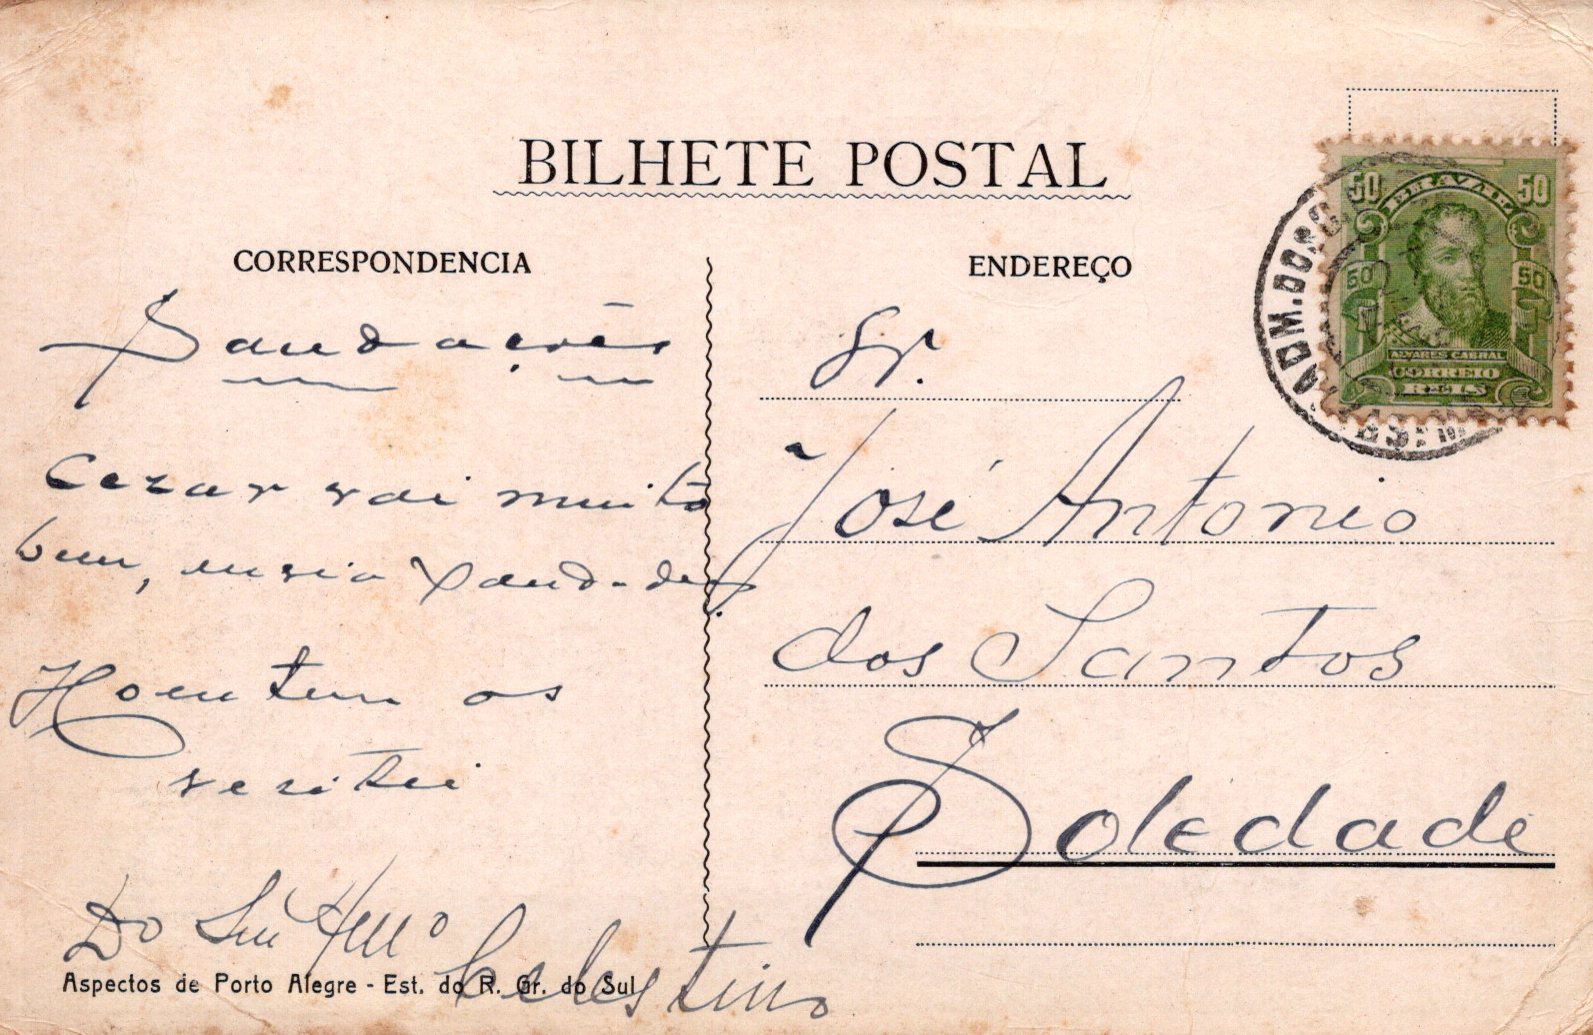 BILHETE POSTAL
CORRESPONDENCIA
Saudações
Cezar vai muito
bem, envia Saud-des.
Hontem os
vesitei
Do Seu Amº
Celestino
Aspectos de Porto Alegre - Est. do R. Gr. do Sul
ENDEREÇO
Sr.
José Antonio
dos Santos
Soledade
50 BRAZIL 50
50 50
ALVARES CABRAL
CORREIO
REIS
ADM. DOS C